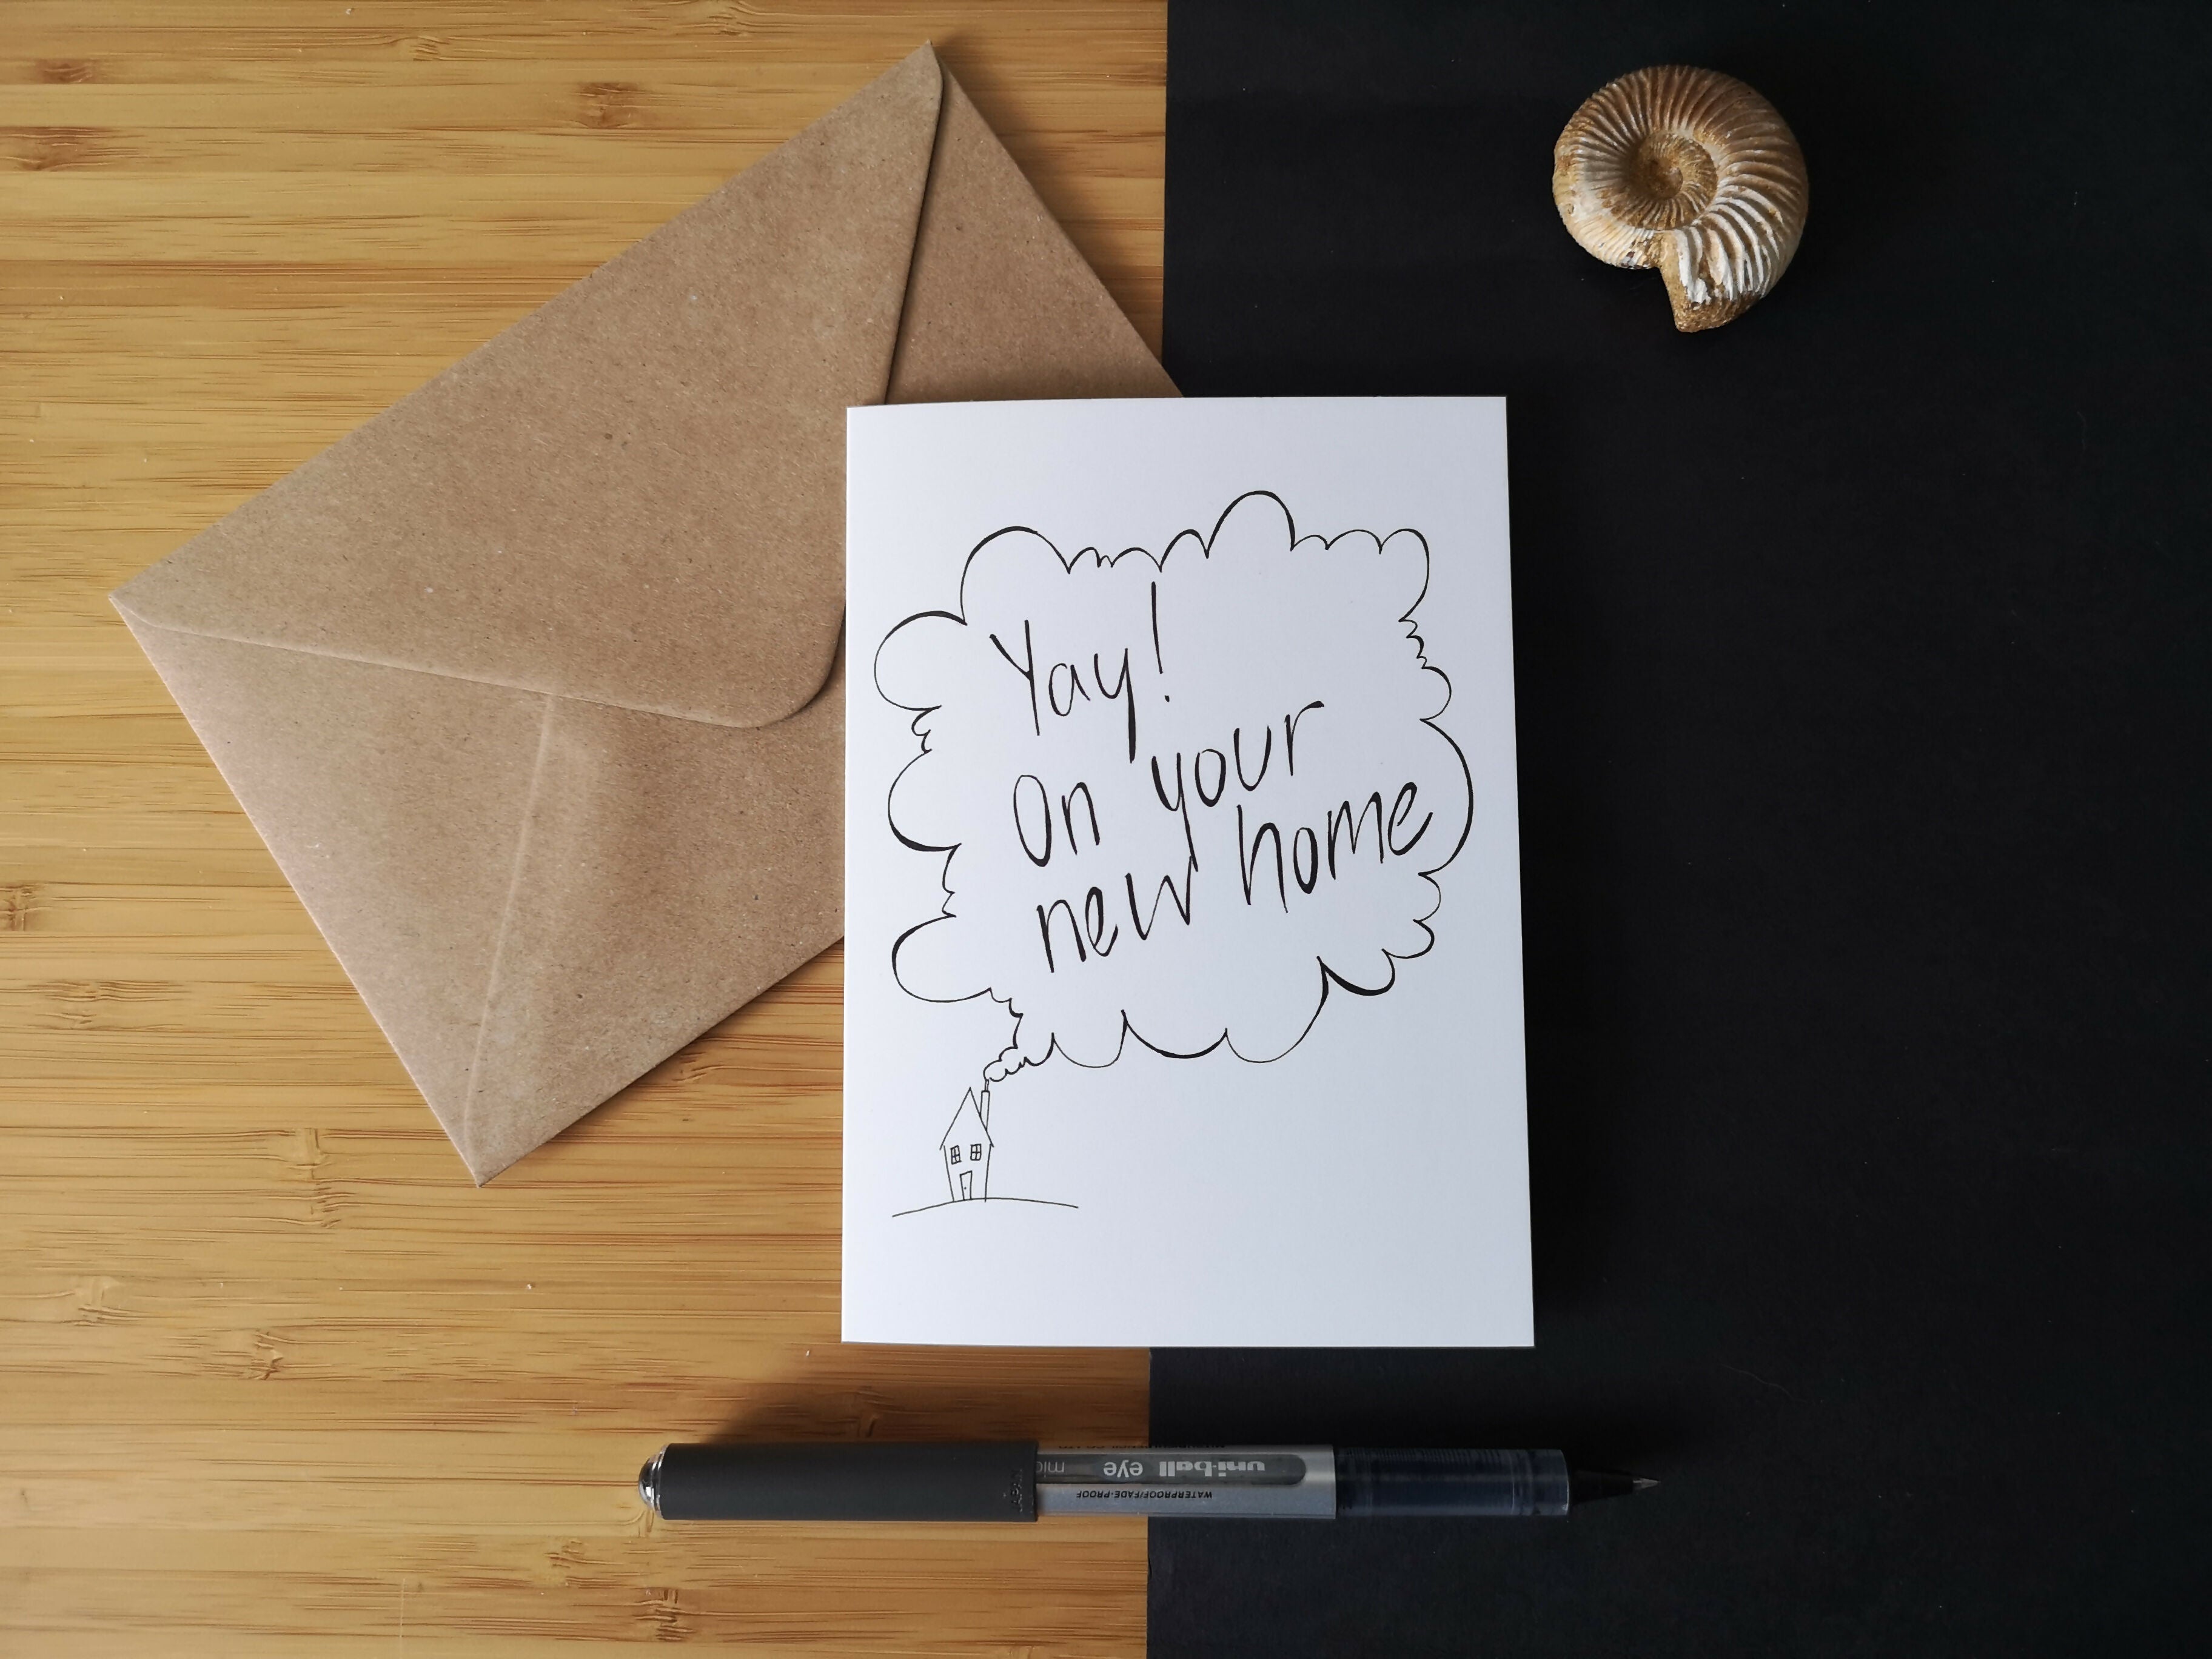 Yay!
On your
new home
uni-ball eye
WATERPROOF/FADE-PROOF